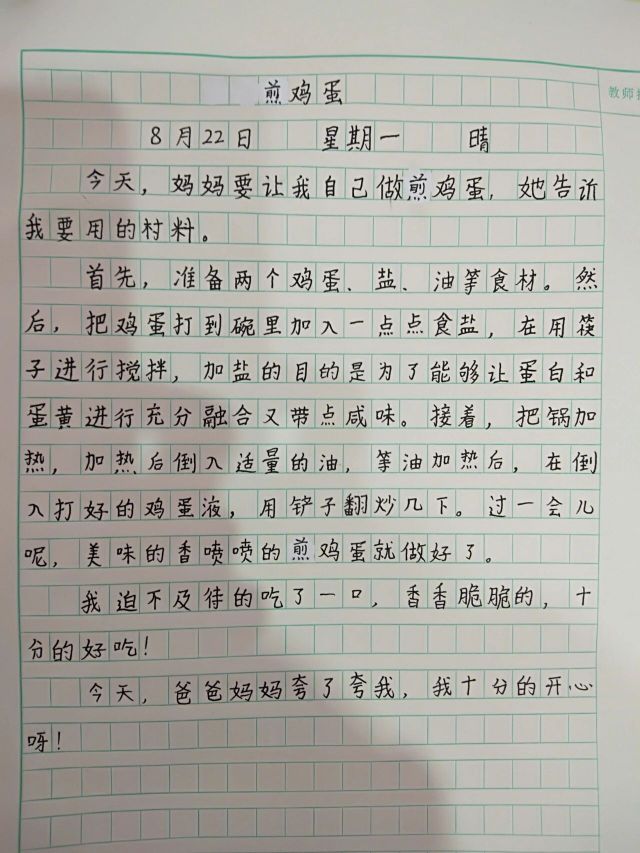 教师
煎鸡蛋
8月22日 星期一 晴
今天，妈妈要让我自己做煎鸡蛋，她告诉
我要用的材料。
首先，准备两个鸡蛋、盐、油等食材。然
后，把鸡蛋打到碗里加入一点点食盐，在用筷
子进行搅拌，加盐的目的是为了能够让蛋白和
蛋黄进行充分融合又带点咸味。接着，把锅加
热，加热后倒入适量的油，等油加热后，在倒
入打好的鸡蛋液，用铲子翻炒几下。过一会儿
呢，美味的香喷喷的煎鸡蛋就做好了。
我迫不及待的吃了一口，香香脆脆的，十
分的好吃！
今天，爸爸妈妈夸了夸我，我十分的开心
呀！